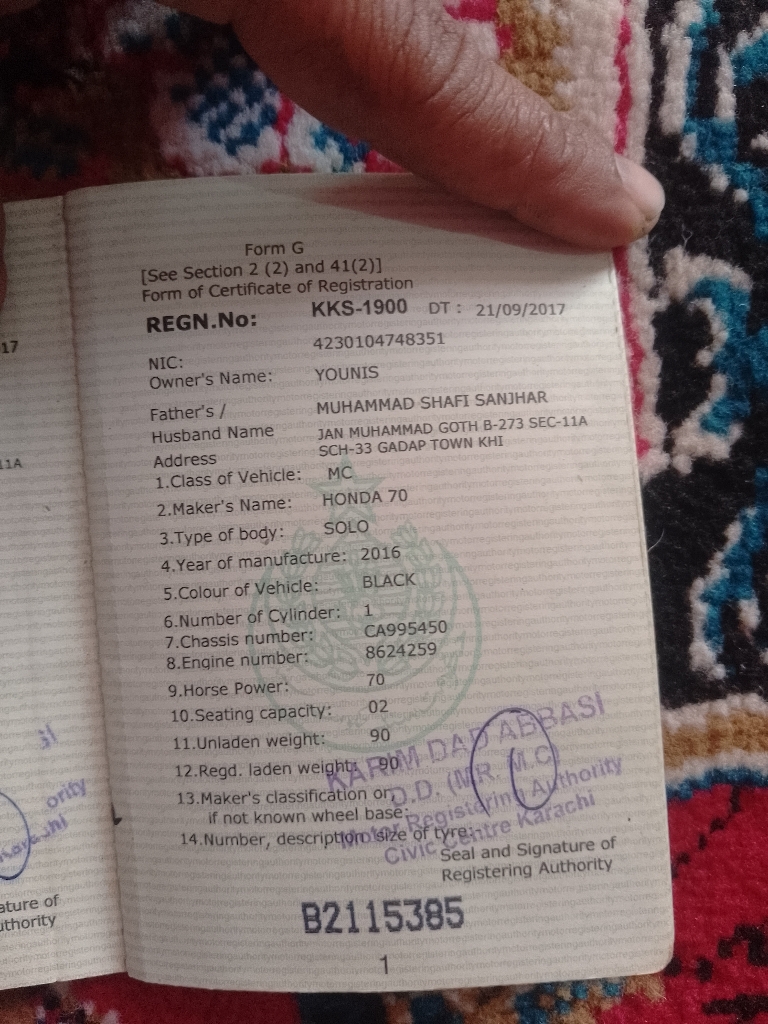 17
11A
ority
arachi
ature of
uthority
Form G
[See Section 2 (2) and 41(2)]
Form of Certificate of Registration
REGN.No: KKS-1900 DT : 21/09/2017
NIC: 4230104748351
Owner's Name: YOUNIS
Father's / MUHAMMAD SHAFI SANJHAR
Husband Name
Address JAN MUHAMMAD GOTH B-273 SEC-11A
SCH-33 GADAP TOWN KHI
1.Class of Vehicle: MC
2.Maker's Name: HONDA 70
3.Type of body: SOLO
4.Year of manufacture: 2016
5.Colour of Vehicle: BLACK
6.Number of Cylinder: 1
7.Chassis number: CA995450
8.Engine number: 8624259
9.Horse Power: 70
10.Seating capacity: 02
11.Unladen weight: 90
12.Regd. laden weight: 90
13.Maker's classification or,
if not known wheel base:
14.Number, description, size of tyre:
KARIM DAD ABBASI
D.D. (MR. M.C)
Motor Registering Authority
Civic Centre Karachi
Seal and Signature of
Registering Authority
B2115385
1